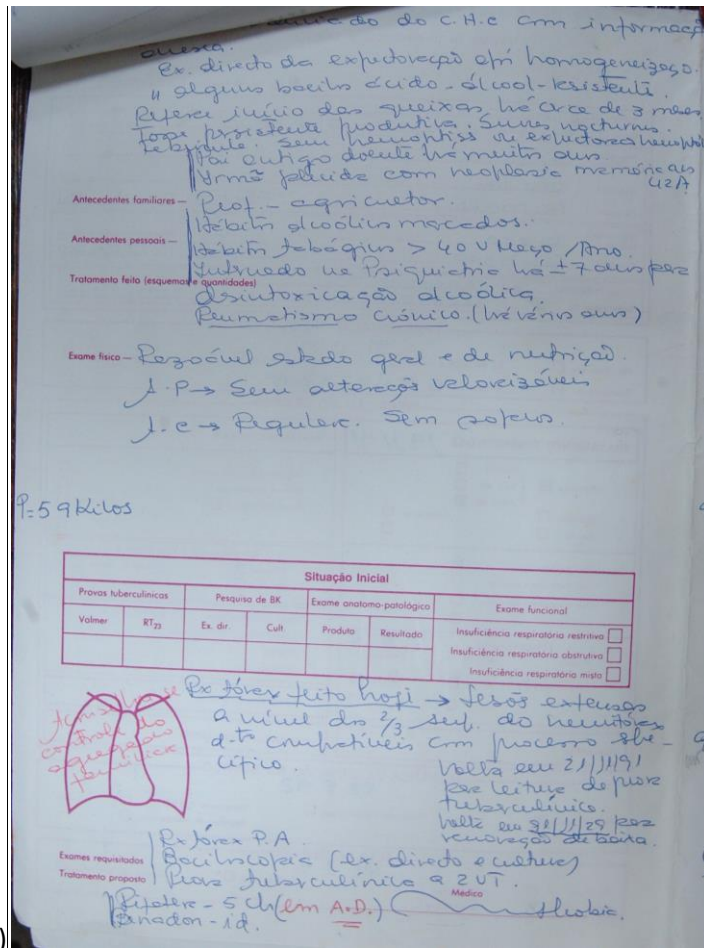 do C.H.C com informaç
anexa.
Ex. directo da expectoração após homogeneizaço.
" alguns bacilos ácido-álcool-resistente.
Refere início das queixas há cerca de 3 meses
Tosse persistente produtiva. Suores nocturnos.
Febrícula. Sem hemoptises ou expectoração hemopt
Pai antigo doente há muitos anos
Irmã falecida com neoplasia mamária aos 42A
Antecedentes familiares — Prof. - agricultor.
Hábitos alcoólicos marcados.
Antecedentes pessoais — Hábitos tabágicos > 40 U Maço / Ano.
Internado na Psiquiatria há ± 7 anos para
Tratamento feito (esquemas e quantidades)
desintoxicação alcoólica.
Reumatismo crónico. (há vários anos)
Exame físico — Razoável estado geral e de nutrição.
A.P → Sem alterações valorizáveis
A.C → Regular. Sem sopros.
P=59 Kilos
Situação Inicial
Provas tuberculínicas Pesquisa de BK Exame anatomo-patológico Exame funcional
Valmer RT23 Ex. dir. Cult. Produto Resultado Insuficiência respiratória restritiva
Insuficiência respiratória obstrutiva
Insuficiência respiratória mista
Aconselha-se
controle do
agregado
familiar
Rx tórax feito hoje → lesões extensas
a nível dos 2/3 sup. do hemitórax
d.to compatíveis com processo espe-
cífico.
Volta em 21/11/91
para leitura de prova
tuberculínica.
Volta em 91/11/29 para
renovação de baixa.
Rx tórax P.A.
Exames requisitados Baciloscopia (ex. directo e cultura)
Tratamento proposto Prova tuberculínica a 2 UT.
Médico
Rifater - 5 cp (em A.D.)
Benadon - id.